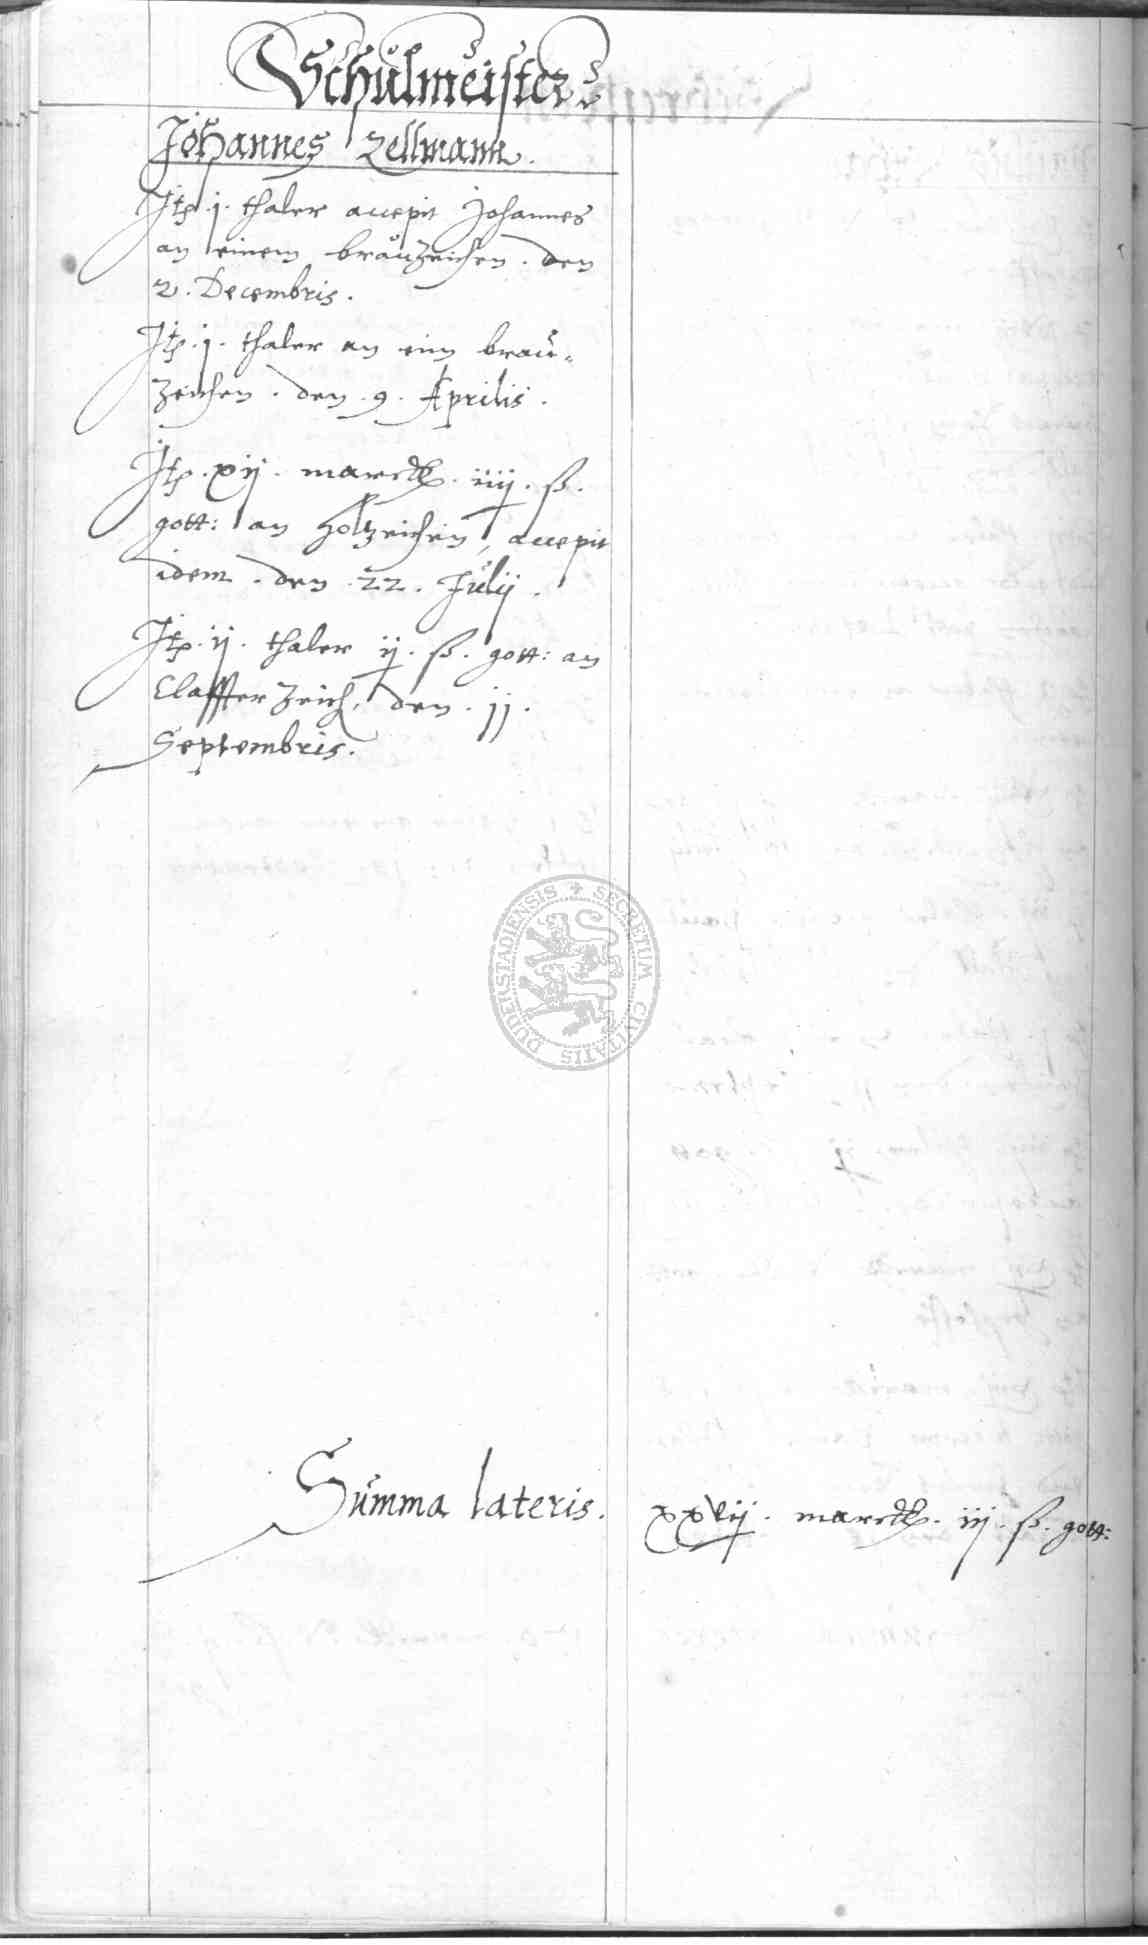 Schulmeister
Johannes Zellmann.
Itp. j. thaler accepit Johannes
an einem brauzeichen. den
2. Decembris.
Itp. j. thaler an eim brau=
zeichen. den. 9. Aprilis.
Itp. xij. marck. iiij. ß.
gott: an Holtzeichen, accepit
idem. den. 22. Julij.
Itp. ij. thaler ij. ß. gott: an
Claffter Zeich, den. jj.
Septembris.
SECRETUM CIVITATIS DUDERSTADIENSIS
Summa lateris. xxvij. marck. iij. ß. gott: